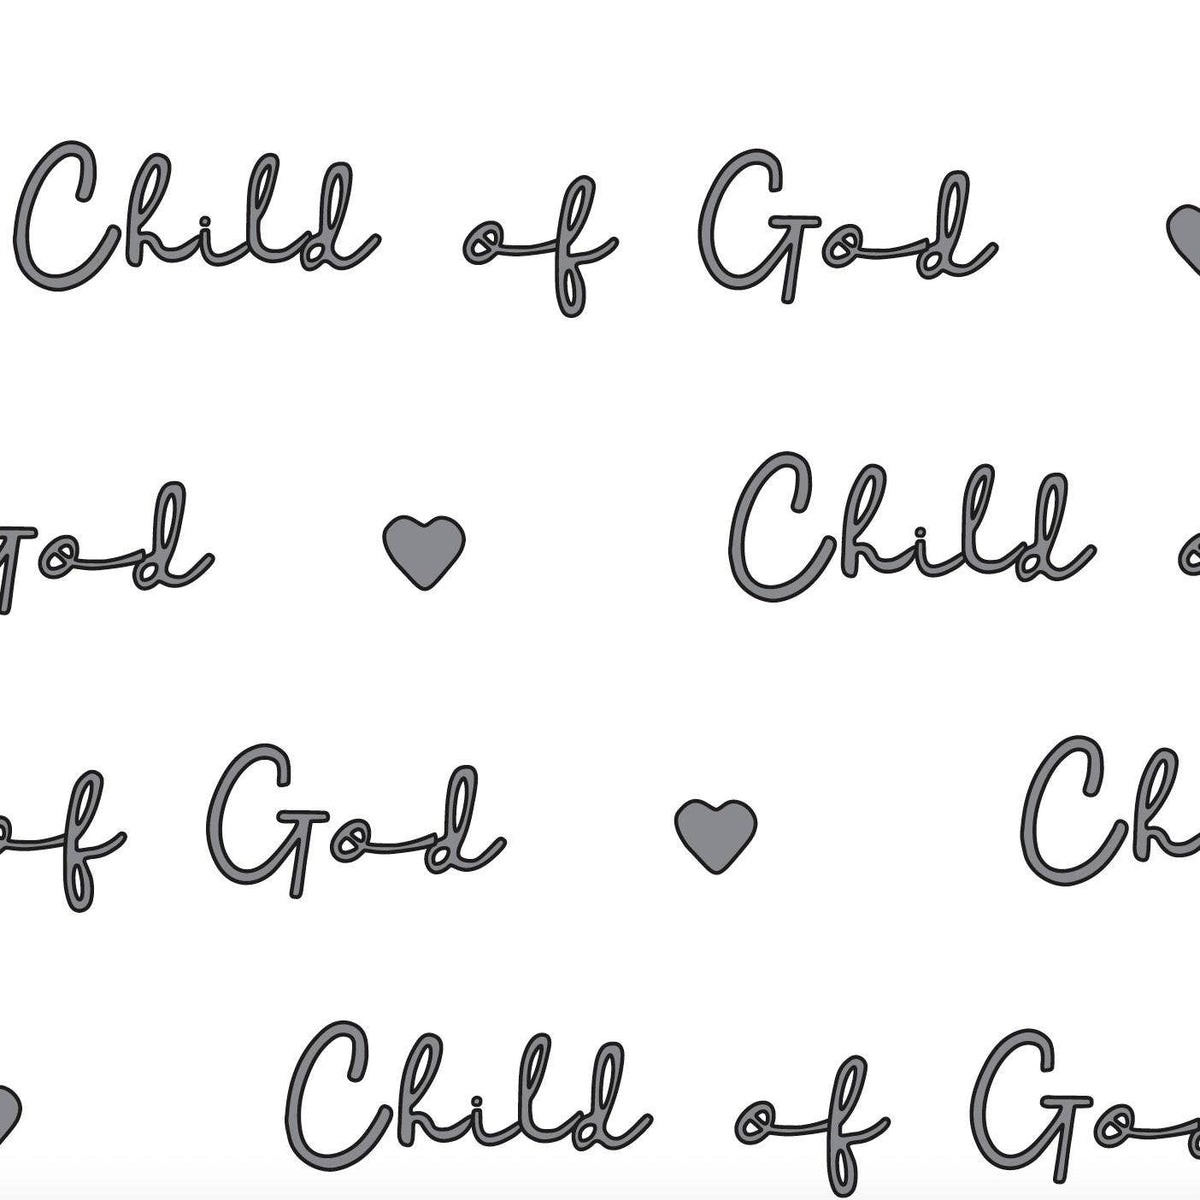 Child of God
God Child
of God Ch
Child of God